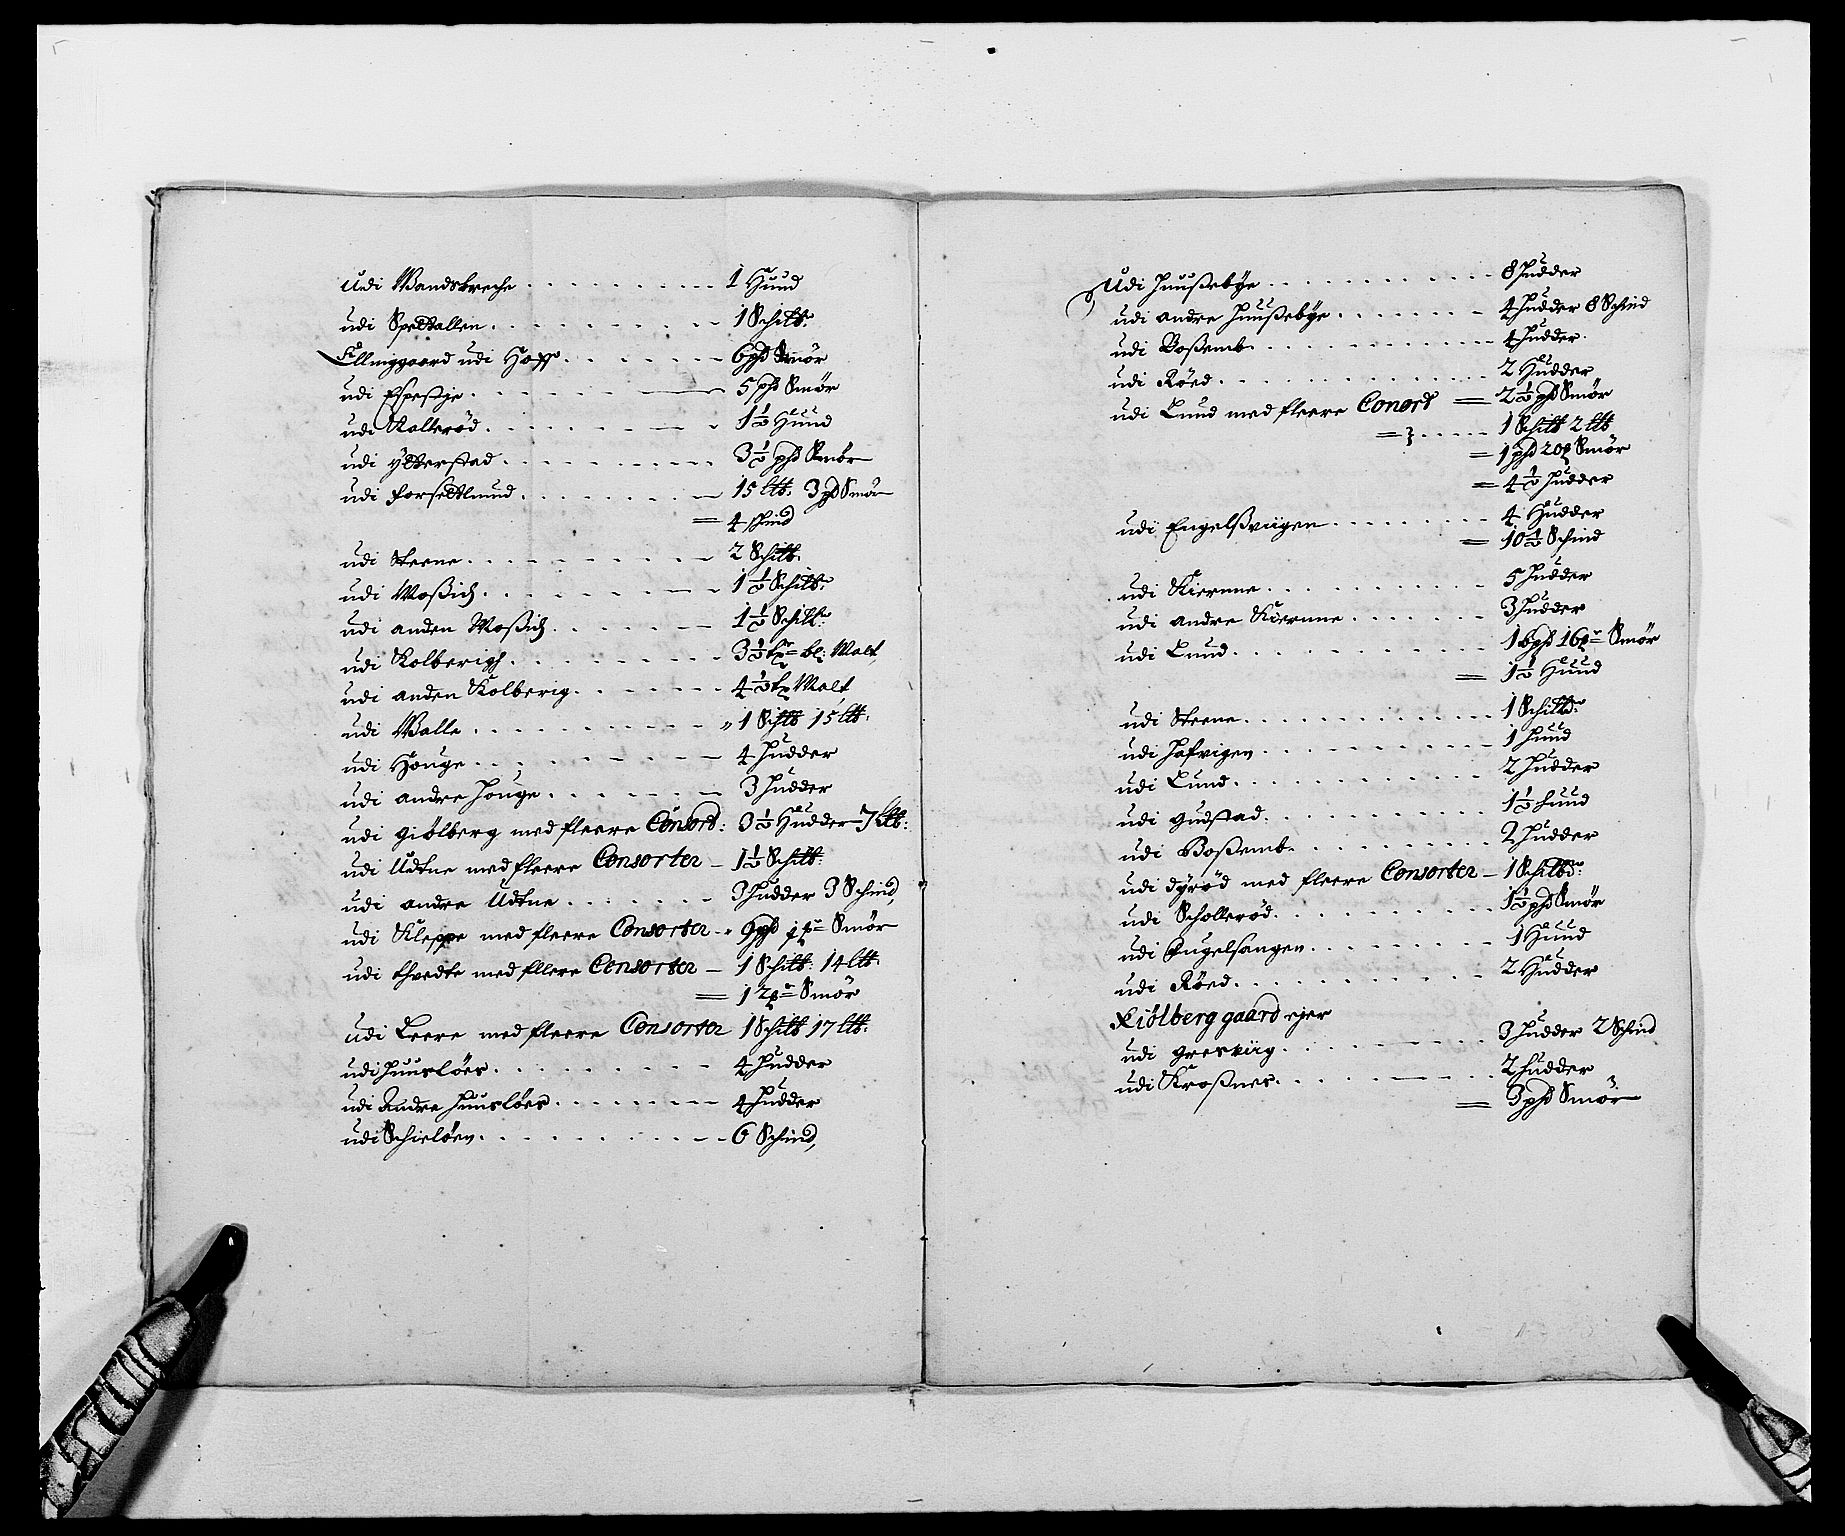 Udi Wandskreche . . . . . . . . . 1 Huud
udi Speltallen . . . . . . . . . 1 Schitt:
Ellinggaard udi Hoff . . . . . . 6 pd Smør
udi Espeßje . . . . . . 5 pd Smør
udi Kallerød . . . . . . . 1½ Huud
udi ytterstad . . . . . . . . . 3½ pd Smør
udi Forsetlund . . . . . . . . 15 ltt: 3 pd Smør
= 4 skind
udi Steene . . . . . . . . . . 2 Schitt:
udi Moßich . . . . . . . . . 1½ Schitt:
udi anden Moßich . . . . . . 1½ Schitt:
udi Kolberigh . . . . . . . . 3½ tr bl: Malt,
udi anden Kolberig . . . . . . 4½ tr Malt
udi Walle . . . . . . . . . . 1 Schtt 15 ltt:
udi Houge . . . . . . . . . . 4 Hudder
udi andre Houge . . . . . . . 3 Hudder
udi giølberg med fleere Consort: 3½ Hudder 7 ltt:
udi Udtne med fleere Consorter – 1½ Schitt:
udi andre Udtne . . . . . . . 3 Hudder 3 Schind,
udi Kleppe med fleere Consorter – 9 pd Smør
udi thvedte med fllere Consorter – 1 Schitt: 14 ltt:
= Smør
udi Leere med fleere Consorter 1 Schitt 17 ltt:
udi Huusløes . . . . . . . . . 4 Hudder
udi Andre Huusløes . . . . . . . 4 Hudder
udi Schieløen . . . . . . . . . . 6 Schind,
Udi Huußebye . . . . . . . . . . 8 Hudder
udi andre Huußebye . . . . . . . 4 Hudder 8 Schind
udi Boßemb . . . . . . . . . . . 4 Hudder.
udi Røed . . . . . . . . . . . . 2 Hudder
udi Lund med fleere Conort = 2½ pd Smør
= . . . . . 1 Schitt 2 ltt
= 1 pd 20 Smør
= 4½ Hudder
udi Engelßviigen . . . . . . . . . 4 Hudder
= 10½ Schind
udi Kiernne . . . . . . . . . . 5 Hudder
udi andre Kiernne . . . . . . . 3 Hudder
udi Lund . . . . . . . . . . . Smør
= 1½ Huud
udi Steene . . . . . . . . . . . . 1 Schittd:
udi Hafvigen . . . . . . . . . . 1 Huud
udi Lund . . . . . . . . . . . . 2 Hudder
udi gudstad . . . . . . . . . . . 1½ Huud
udi Boßemb . . . . . . . . . . 2 Hudder
udi dyrød med fleere Consorter – 1 Schittd:
udi Schollerød . . . . . . . . . . 1½ pd Smør
udi Engelsangen . . . . . . . . . 1 Huud
udi Røed . . . . . . . . . . . . 2 Hudder
Kiølberg gaard ejer
udi gresviig . . . . . . . . . . 3 Hudder 2 Schind
udi Kroßnes . . . . . . . . . . 2 Hudder
= 3 pd Smør